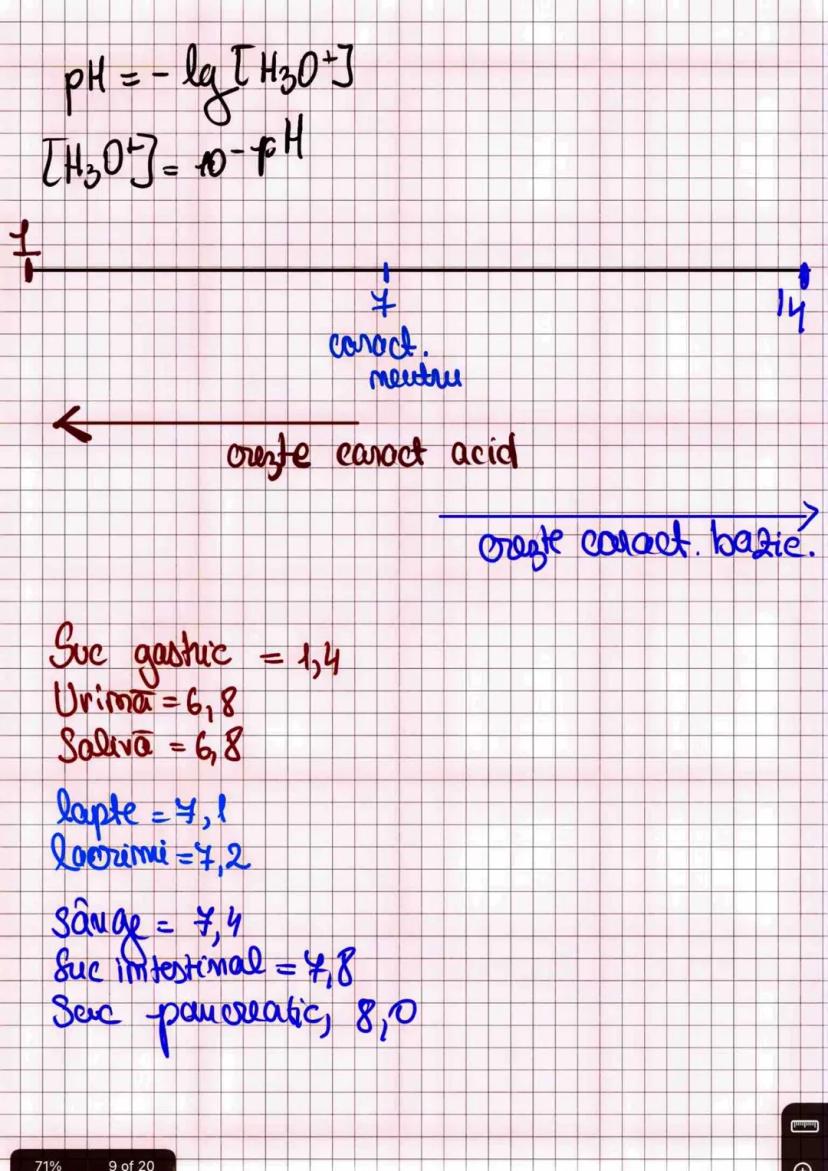 pH = - lg [H₃O⁺]
[H₃O⁺] = 10⁻ᵖᴴ
1
7
14
caract.
neutru
crește caract acid
crește caract. bazic.
Suc gastric = 1,4
Urină = 6,8
Salivă = 6,8
lapte = 7,1
lacrimi = 7,2
Sânge = 7,4
Suc intestinal = 7,8
Suc pancreatic, 8,0
71%
9 of 20